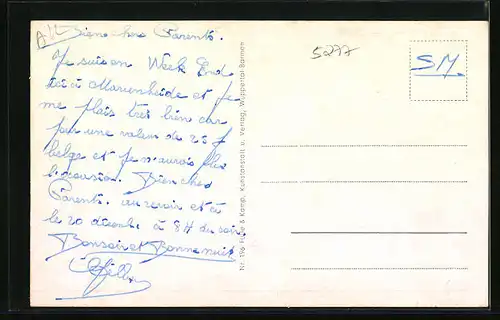 Bien chers Parents.
Je suis en Week End
ici à Marienheide et je
me plais très bien car
pour une valeur de 25 f
belge et je n'aurais plus
l'occasion. Bien chers
Parents. au revoir et à
le 20 décemb. à 8 H du soir.
Bonsoir et Bonne nuit
5277
SM
Nr. 196 & Kamp, Kunstanstalt u. Verlag, Wuppertal-Barmen